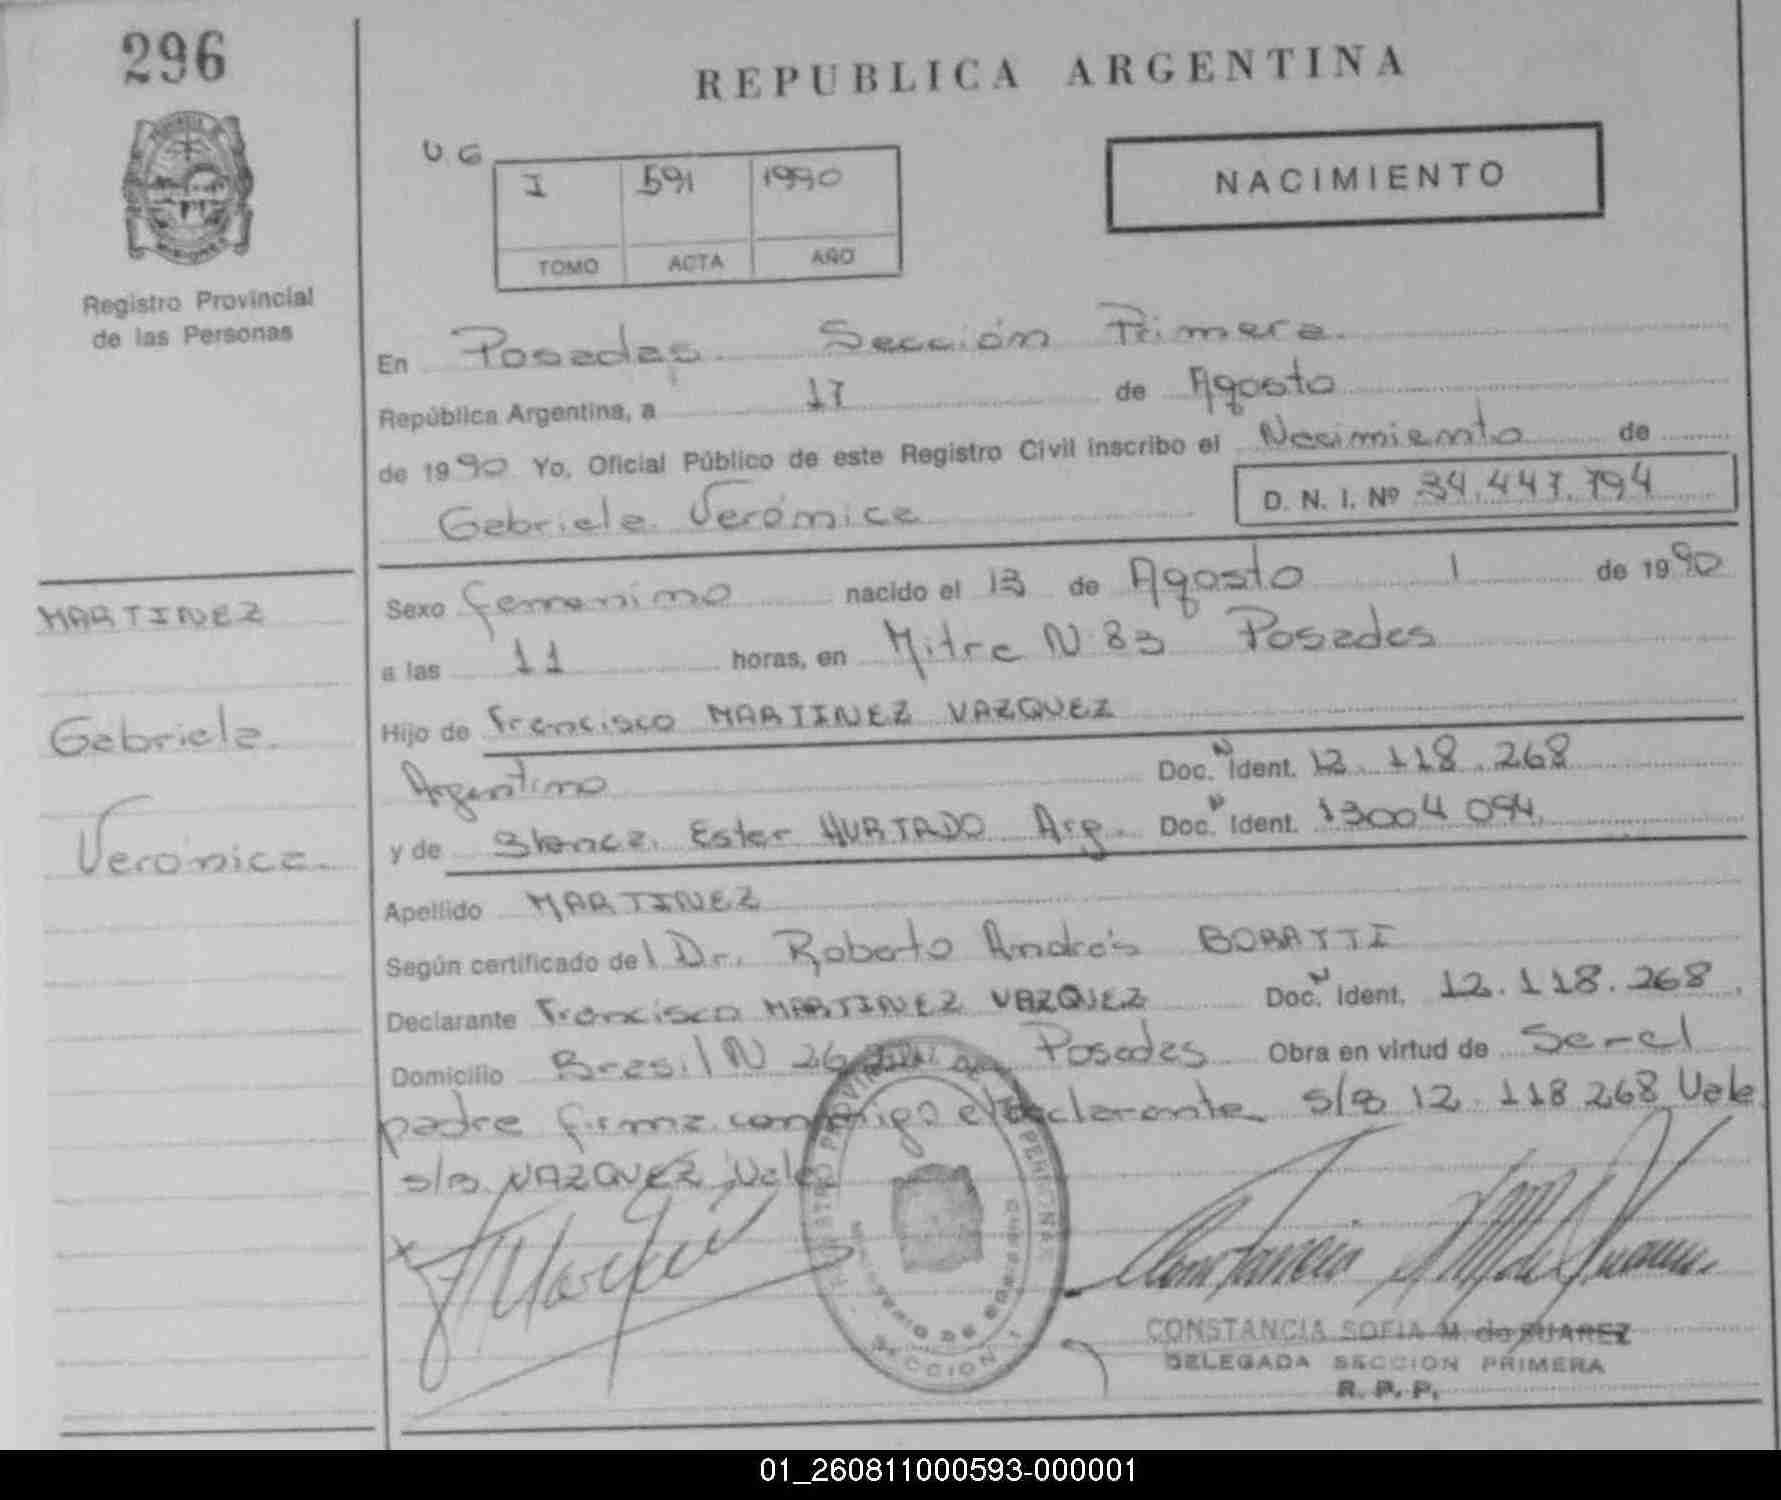 296
REPUBLICA ARGENTINA
U. G
I 591 1990
TOMO ACTA AÑO
NACIMIENTO
Registro Provincial
de las Personas
En Posadas Sección Primera
República Argentina, a 17 de Agosto
de 1990 Yo, Oficial Público de este Registro Civil inscribo el Nacimiento de
Gabriela Verónica D. N. I. Nº 34.447.794
Sexo femenino nacido el 13 de Agosto de 1990
a las 11 horas, en Mitre N 83 Posadas
Hijo de Francisco MARTINEZ VAZQUEZ
Argentino Doc. N Ident. 12.118.268
y de Blanca Ester HURTADO Arg. Doc. N Ident. 13004094
Apellido MARTINEZ
Según certificado del Dr. Roberto Andrés BORATTI
Declarante Francisco MARTINEZ VAZQUEZ Doc. N Ident. 12.118.268
Domicilio Brasil N Posadas Obra en virtud de Ser el
padre firma conmigo el declarante s/b 12.118 268 Vale
s/b VAZQUEZ Vale
MARTINEZ
Gabriela
Verónica
CONSTANCIA SOFIA M. de SUAREZ
DELEGADA SECCION PRIMERA
R. P. P.
SECCION 1
01_260811000593-000001